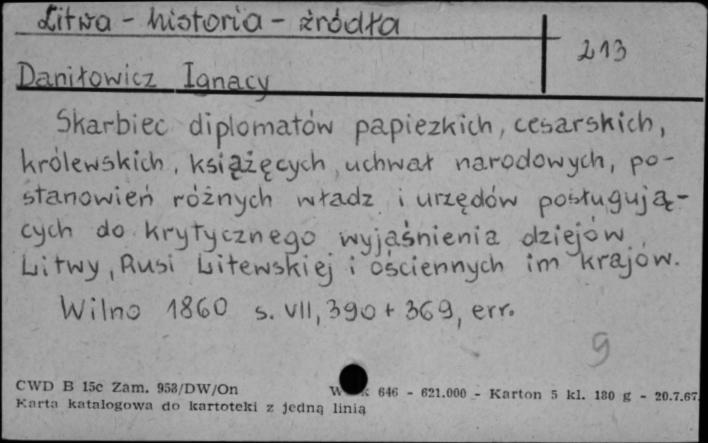 Litwa - historia - źródła
213
Daniłowicz Ignacy
Skarbiec diplomatów papiezkich, cesarskich,
królewskich, książęcych, uchwał narodowych, po-
stanowień różnych władz i urzędów posługują-
cych do krytycznego wyjaśnienia dziejów
Litwy, Rusi Litewskiej i ościennych im krajów.
Wilno 1860 s. VII, 390 + 369, err.
9
CWD B 15c Zam. 958/DW/On 646 - 621.000 - Karton 5 kl. 180 g - 20.7.67
Karta katalogowa do kartoteki z jedną linią